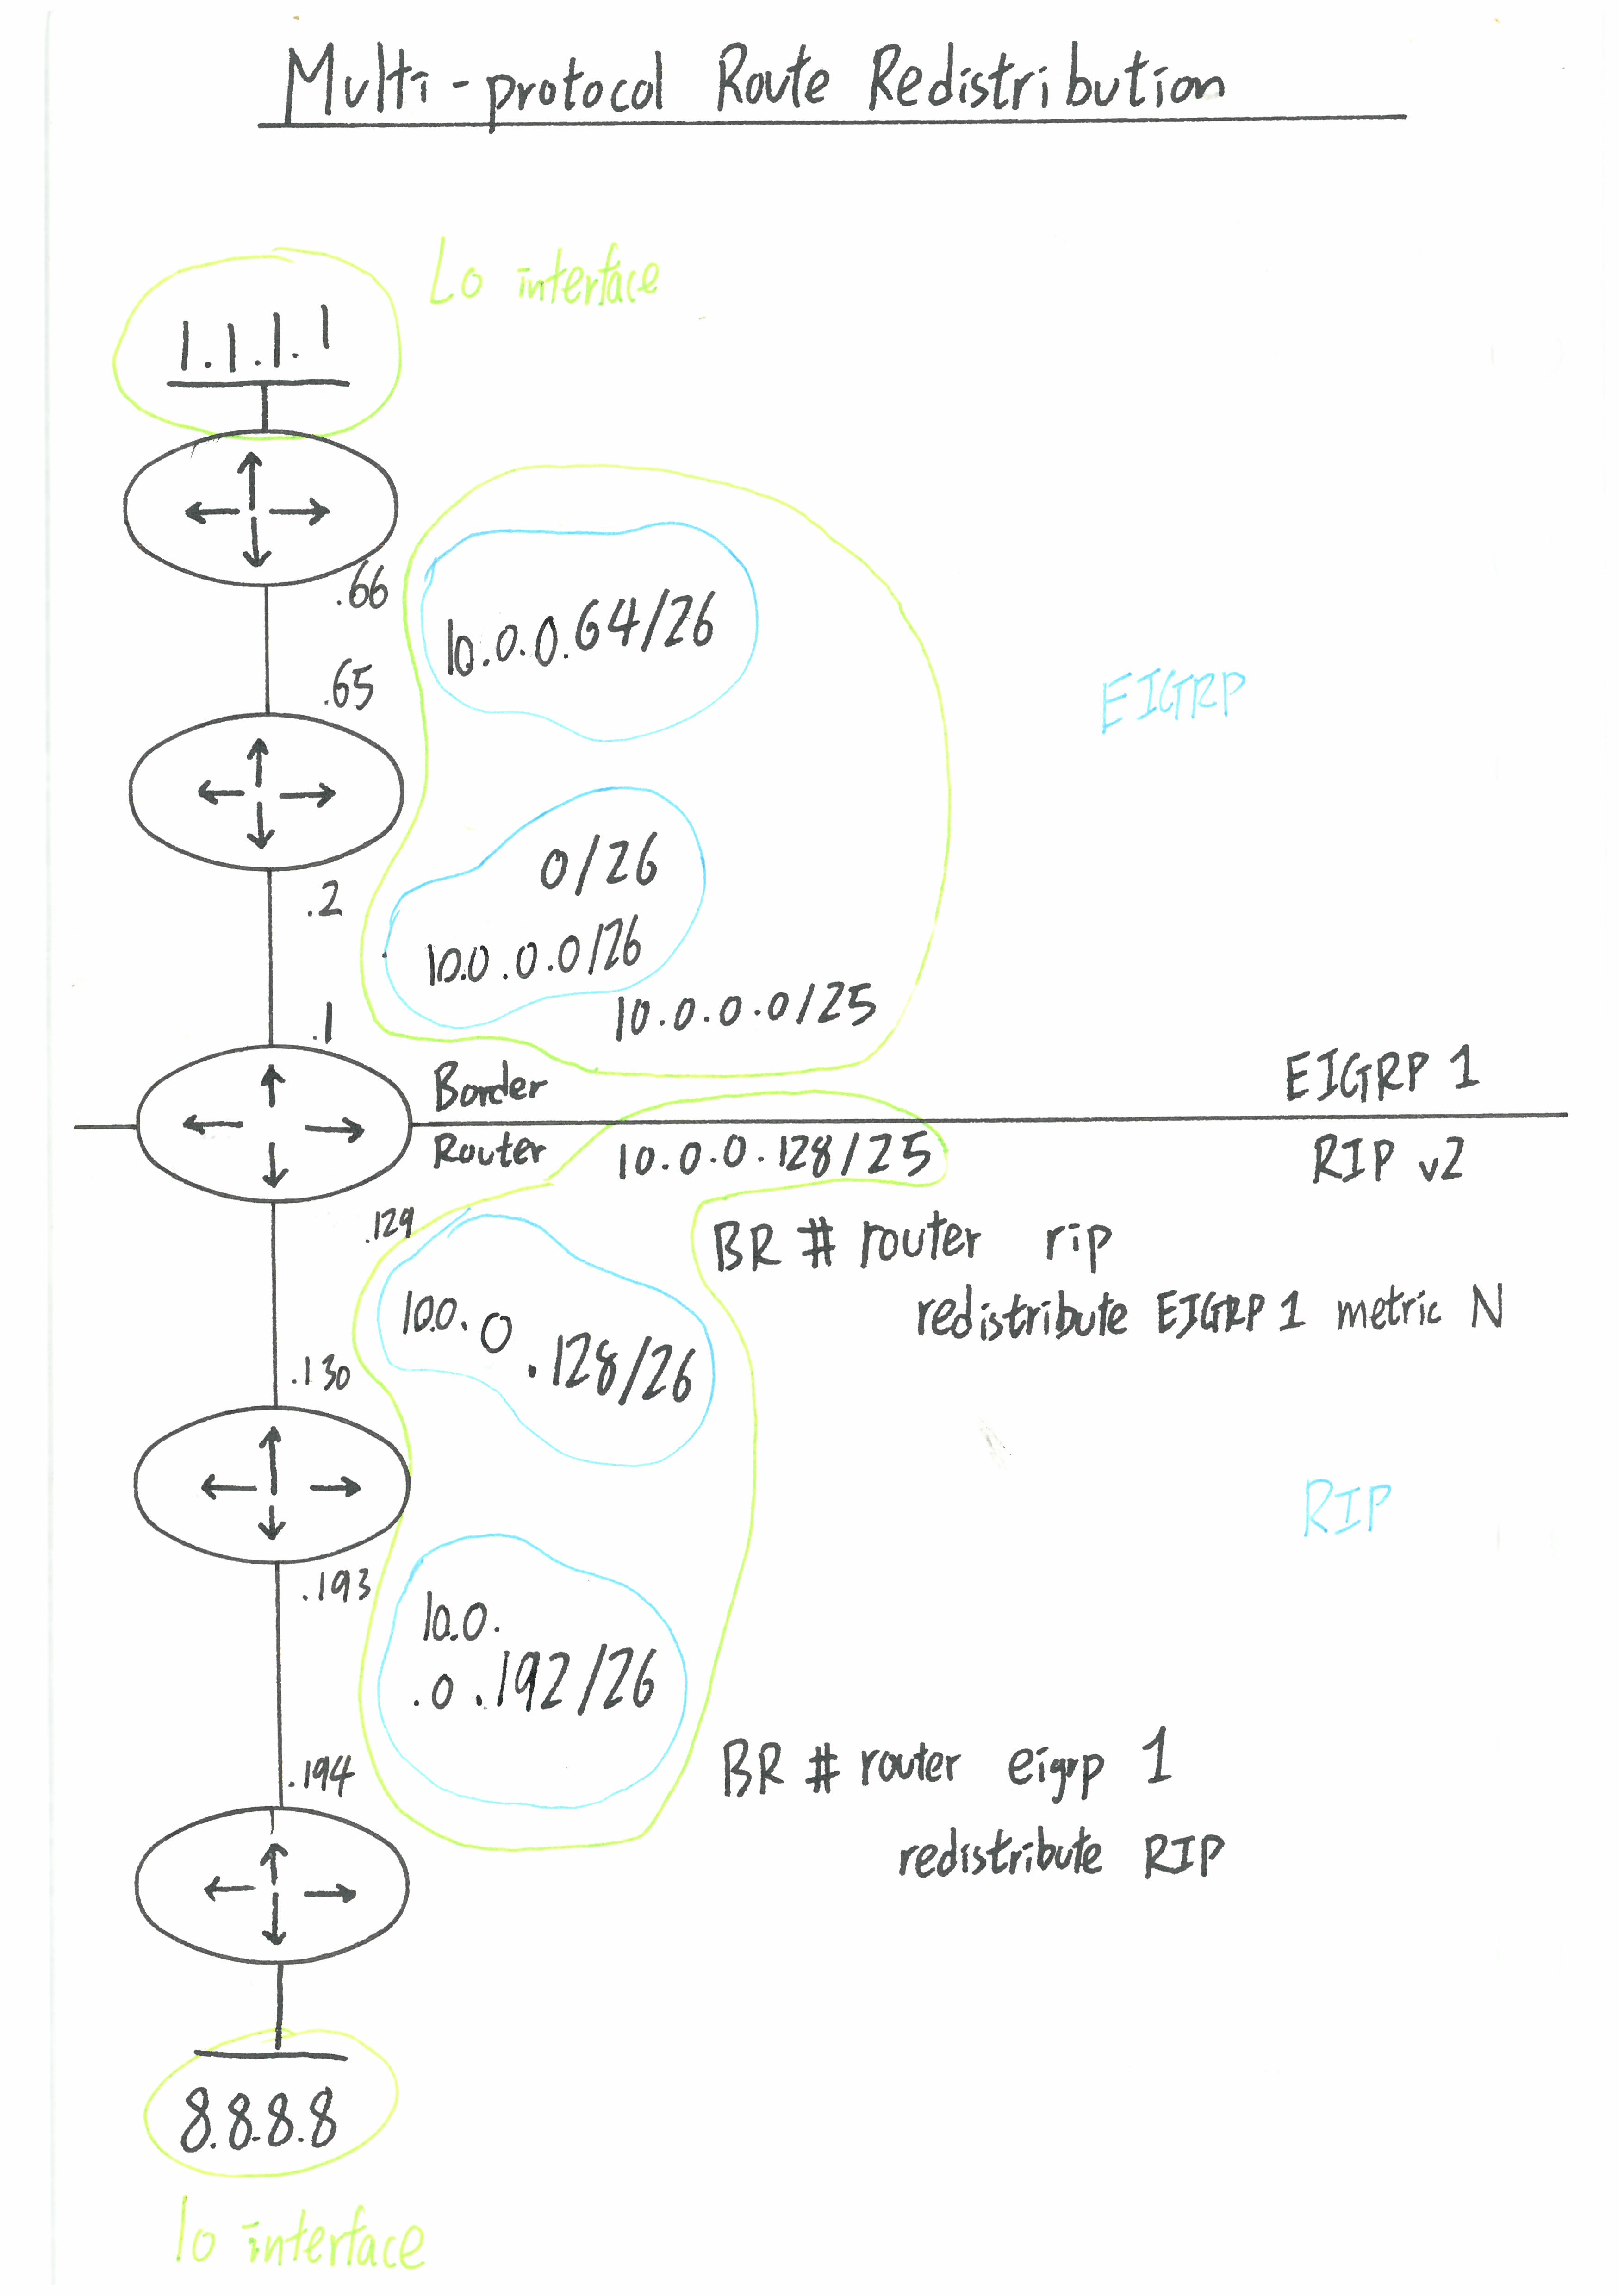 Multi-protocol Route Redistribution
Lo interface
1.1.1.1
.66
10.0.0.64/26
.65
EIGRP
0/26
.2
10.0.0.0/26
10.0.0.0/25
.1
Border
EIGRP 1
Router
10.0.0.128/25
RIP v2
.129
BR # router rip
redistribute EIGRP 1 metric N
10.0.0
.128/26
.130
RIP
.193
10.0.
.0.192/26
.194
BR # router eigrp 1
redistribute RIP
8.8.8.8
lo interface